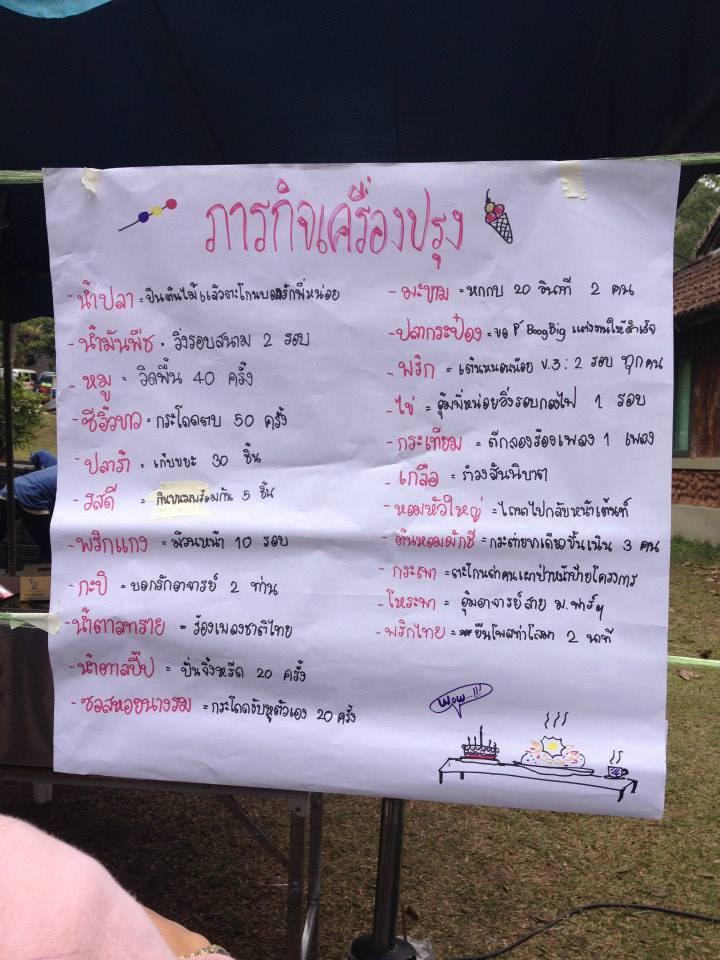 ภารกิจเครื่องปรุง
- น้ำปลา = ปีนต้นไม้แล้วตะโกนบอกรักพี่หน่อย
- น้ำมันพืช = วิ่งรอบสนาม 2 รอบ
- หมู = วิดพื้น 40 ครั้ง
- ซีอิ๊วขาว = กระโดดตบ 50 ครั้ง
- ปลาร้า = เก็บขยะ 30 ชิ้น
- รสดี = กินขนมพร้อมกัน 5 ชิ้น
- พริกแกง = ม้วนหน้า 10 รอบ
- กะปิ = บอกรักอาจารย์ 2 ท่าน
- น้ำตาลทราย = ร้องเพลงชาติไทย
- น้ำตาลปี๊ป = ปั่นจิ้งหรีด 20 ครั้ง
- ซอสหอยนางรม = กระโดดจับหูตัวเอง 20 ครั้ง
- มะขาม = หกกบ 20 วินาที 2 คน
- ปลากระป๋อง = ขอ P' BoogBig แต่งงานให้สำเร็จ
- พริก = เต้นหนอนน้อย V.3 : 2 รอบ ทุกคน
- ไข่ = อุ้มพี่หน่อยวิ่งรอบกองไฟ 1 รอบ
- กระเทียม = ตีกลองร้องเพลง 1 เพลง
- เกลือ = รำวงสันนิบาต
- หอมหัวใหญ่ = ไถนาไปกลับหน้าเต้นท์
- ต้นหอมผักชี = กระต่ายขาเดียวขึ้นเนิน 3 คน
- กระเพา = ตะโกนด่าคนเผาป่าหน้าป้ายโครงการ
- โหระพา = อุ้มอาจารย์สาย ม.ฟาร์ฯ
- พริกไทย = ยืนโพสท่าโสมา 2 นาที
WOW...!!!